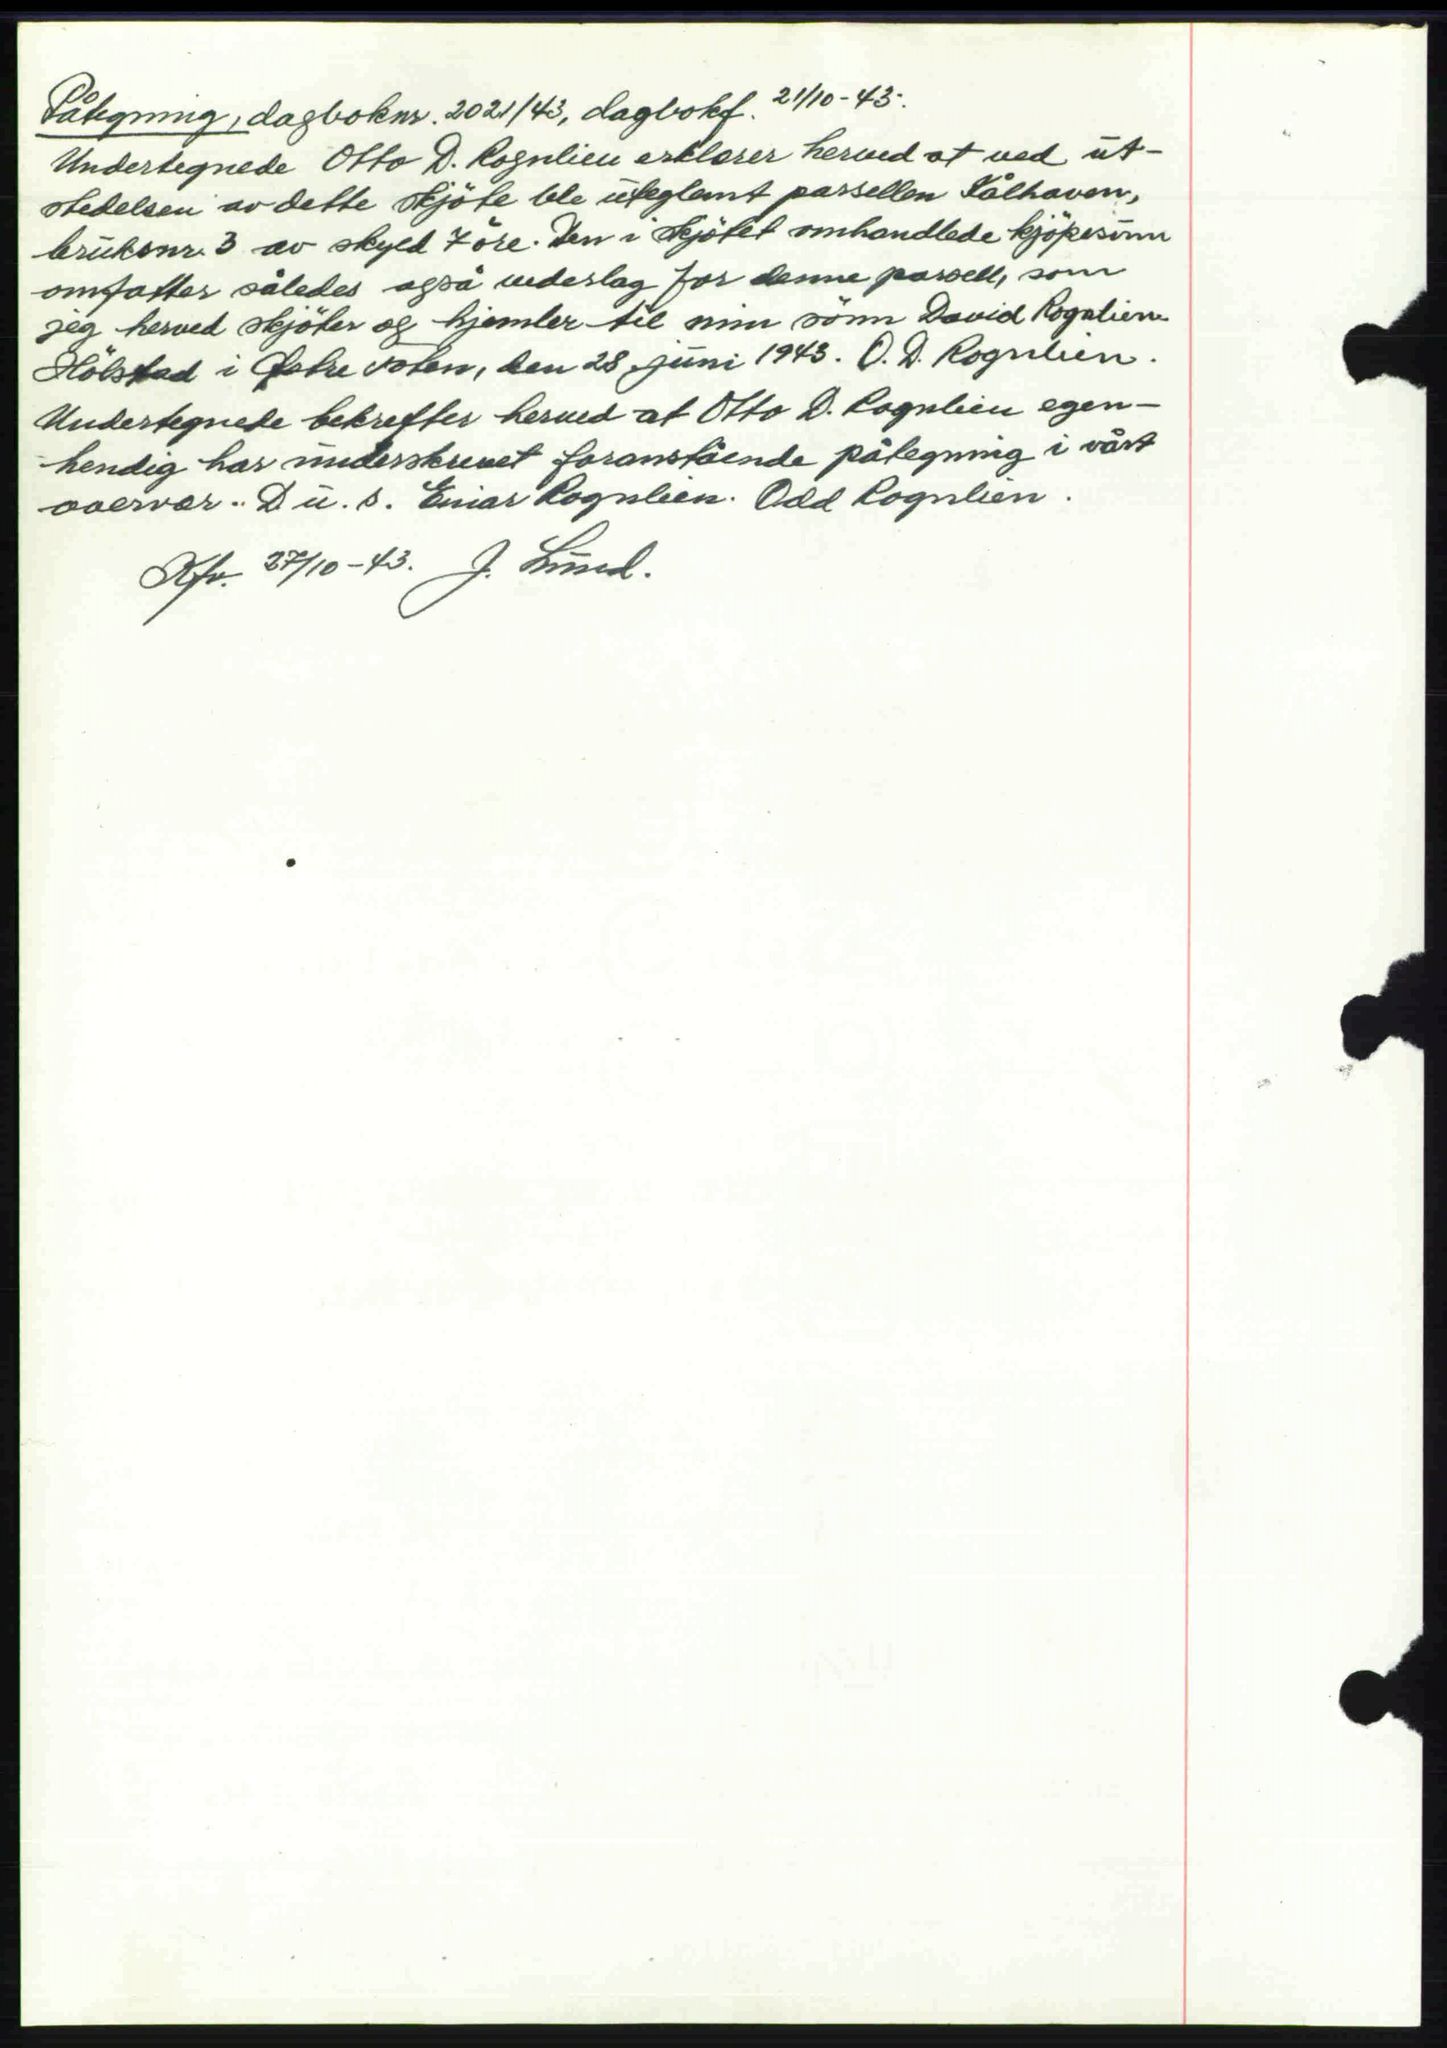 Påtegning, dagboknr. 2021/43, dagbokf. 21/10-43.
Undertegnede Otto D. Rognlien erklærer herved at ved ut-
stedelsen av dette skjöte ble uteglemt parsellen Kålhaven,
bruksnr. 3 av skyld 7 öre. Den i skjötet omhandlede kjöpesum
omfatter således også vederlag for denne parsell, som
jeg herved skjöter og hjemler til min sönn David Rognlien.
Hölstad i Östre Toten, den 28 juni 1943. O. D. Rognlien.
Undertegnede bekrefter herved at Otto D. Rognlien egen-
hendig har underskrevet foranstående påtegning i vårt
overvær. D u. s. Einar Rognlien. Odd Rognlien.
Kfr. 27/10-43. J. Lund.